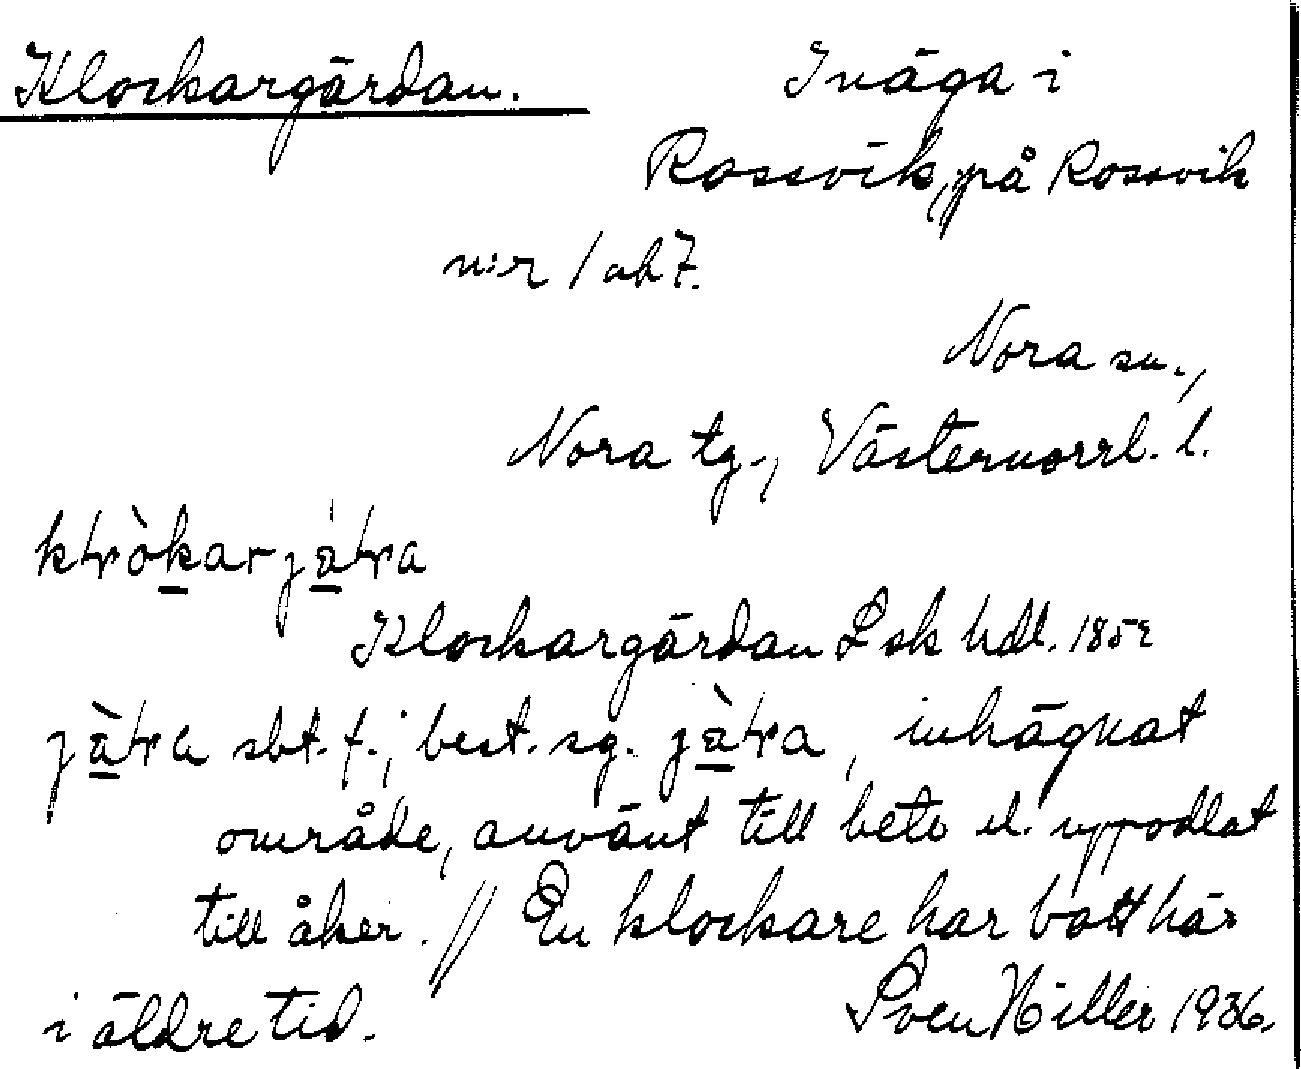 Klockargärdan. Inäga i
Rossvik, på Rossvik
n:r 1 och 7.
Nora sn.,
Nora tg., Västernorrl. l.
Klockargärdan Lsk hdl. 1852
sbt. f.; best. sg. , inhägnat
område, använt till bete el. uppodlat
till åker. // En klockare har bott här
i äldre tid. Sven Hiller 1936.